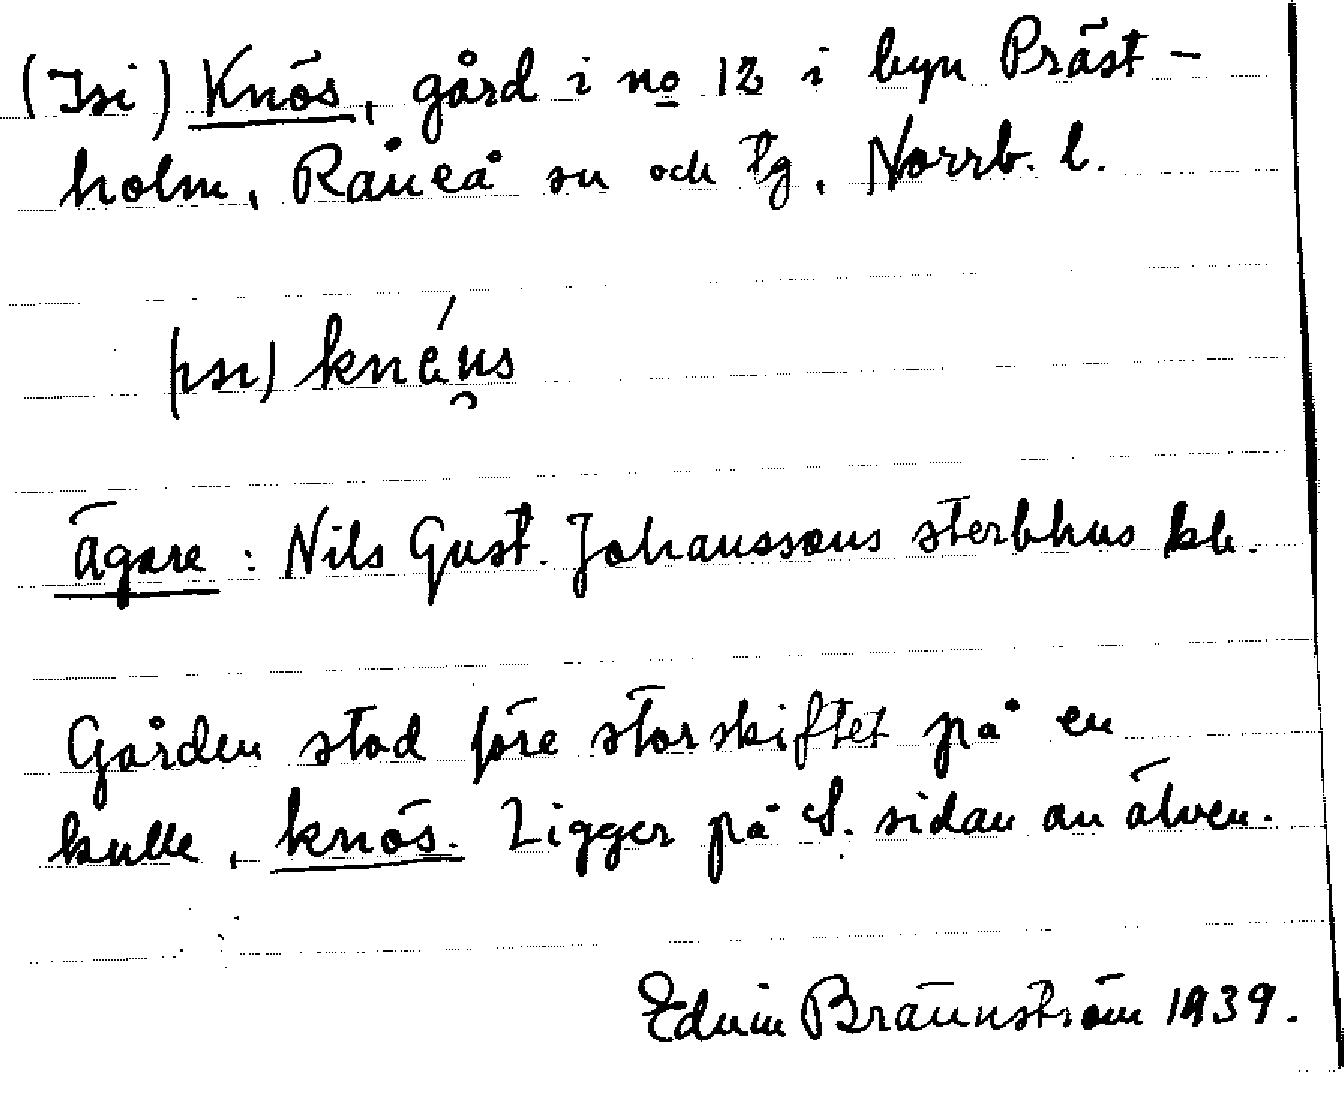 (Isi) Knös, gård i no 12 i byn Präst-
holm, Råneå sn och tg, Norrb. l.
(isi) knéu̯s
Ägare: Nils Gust. Johanssons sterbhus
Gården stod före storskiftet på en
kulle, knös. Ligger på S. sidan av älven.
Edvin Brännström 1939.